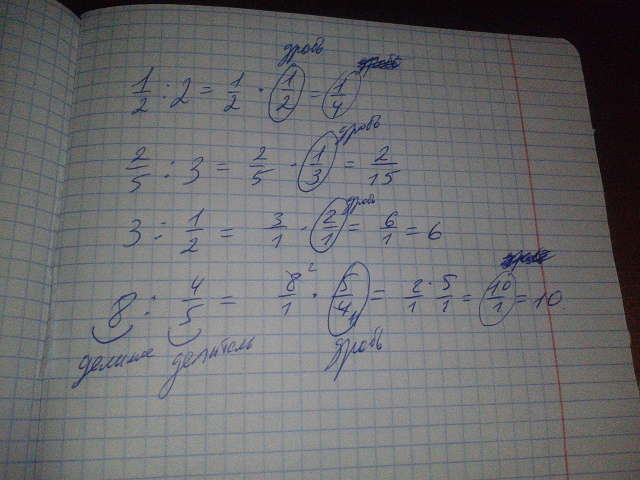 дробь
1/2 : 2 = 1/2 · 1/2 = 1/4
дробь
2/5 : 3 = 2/5 · 1/3 = 2/15
дробь
3 : 1/2 = 3/1 · 2/1 = 6/1 = 6
8 : 4/5 = 8/1 2 · 5/4 1 = 2·5/1 1 = 10/1 = 10.
делимое делитель дробь